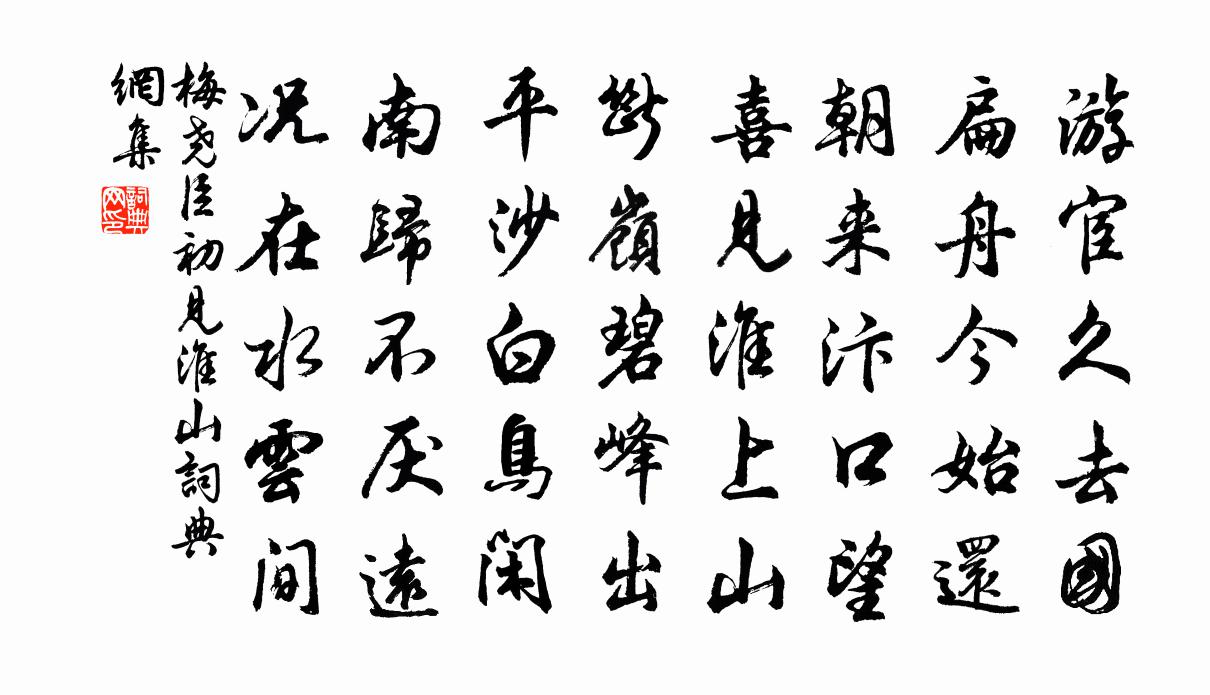 游宦久去國
扁舟今始還
朝来汴口望
喜見淮上山
斷嶺碧峰出
平沙白鳥閑
南歸不厌遠
况在水雲間
梅尧臣初見淮山詞典
網集
詞典
网印